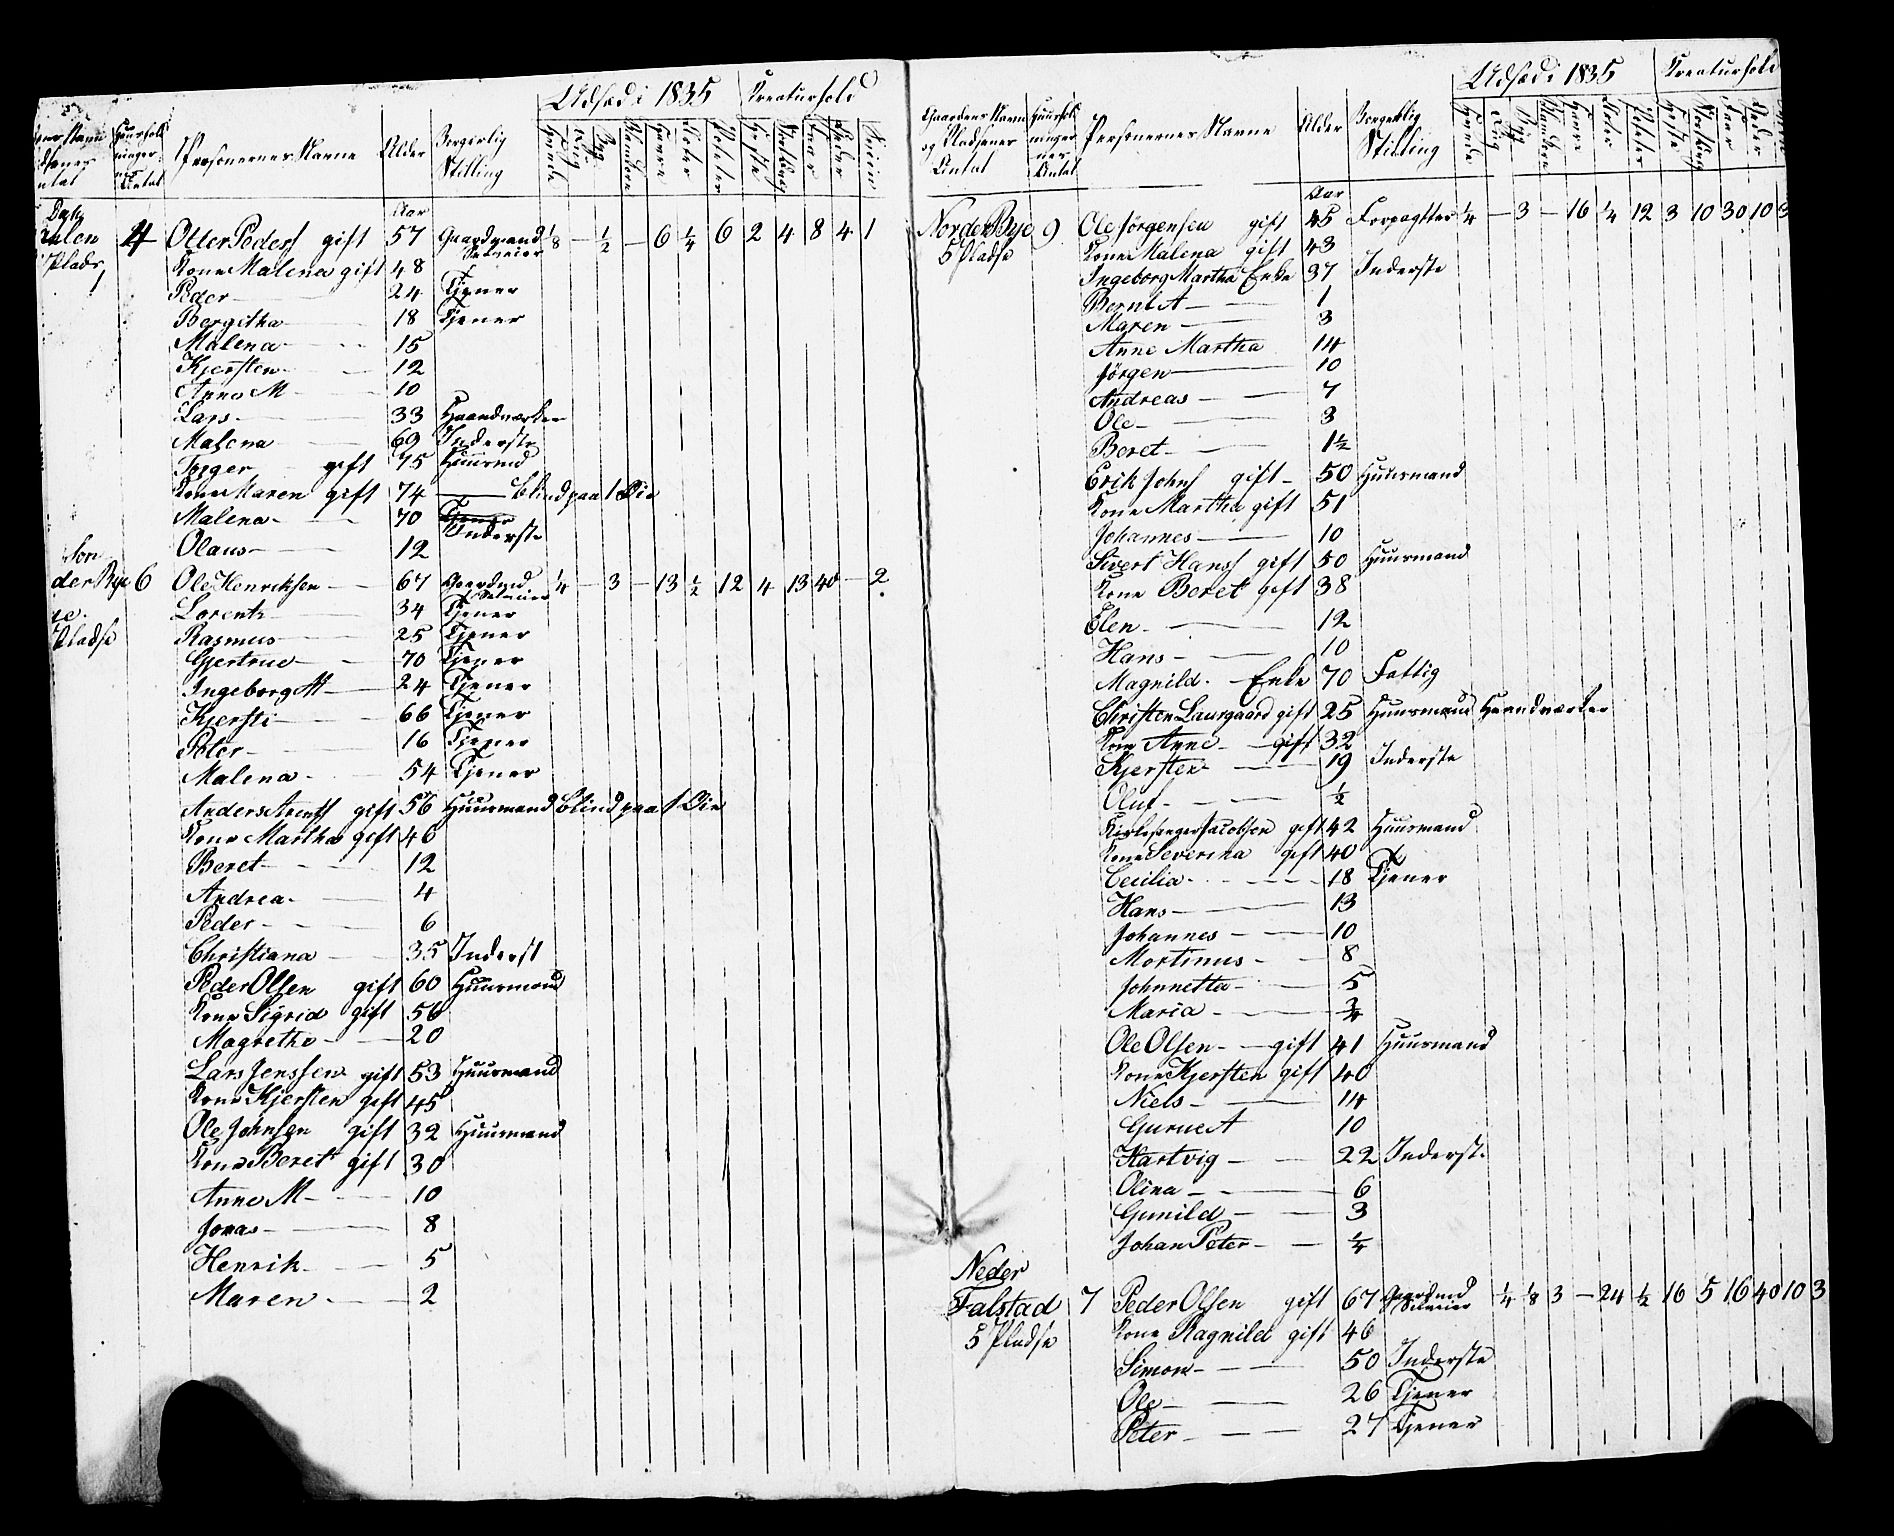 Udsæd i 1835 Kreaturhold
Huusholdninger Personernes Navne Alder Borgerlig
Stilling
Antal
Hvede Rug Byg Blandkorn Havre Erter Poteter Heste Stort Qvæg Faar Geder Sviin
Aar
4 Oller Pederss gift 57 Gaardmand 1/8 — 1/2 — 6 1/4 6 2 4 8 4 1
Selveier
Plads Kone Malena gift 48
Peder 24 Tjener
Bergitha 18 Tjener
Malena 15
Kjersten 12
Anne M 10
Lars 33 Haandværker
Malena 69 Inderste
Torger gift 75 Huusmd
Kone Maren gift 74 — blind paa 1 Øie
Malena 70 Tjener
Inderste
Olaus 12
Søn
der Bye 6 Ole Henriksen 67 Gaardmd 1/4 — 3 — 13 1/2 12 4 13 40 — 2
Selveier
Lorents 34 Tjener
Pladse Rasmus 25 Tjener
Gjertrue 70 Tjener
Ingeborg M 24 Tjener
Kjersti 66 Tjener
Peter 16 Tjener
Malena 54 Tjener
Anders Arentss gift 56 Huusmand blind paa 1 Øie
Kone Martha gift 46
Beret 12
Andrea 4
Peder 6
Christiana 35 Inderst
Peder Olsen gift 60 Huusmand
Kone Sigrid gift 56
Magrethe 20
Lars Jenssen gift 53 Huusmand
Kone Kjersten gift 45
Ole Johnsen gift 32 Huusmand
Kone Beret gift 30
Anne M 10
Jonas 8
Henrik 5
Maren 2
Udsæd i 1835 Kreaturhold
Gaardens Navn Huushold
og Pladsenes ninger Personernes Navne Alder Borgerlig
Antal nes Antal Stilling
Hvede Rug Byg Blandkorn Havre Erter Poteter Heste Stort Qvæg Faar Geder
Aar
Norder Bye 9 Ole Jörgensen gift 45 Forpagter 1/4 — 3 — 16 1/4 12 3 10 30 10 3
5 Pladse Kone Malena gift 43
Ingeborg Martha Enke 37 Inderste
Bernt A 1
Maren 3
Anne Martha 14
Jörgen 10
Andreas 7
Ole 3
Beret 1 1/2
Erik Johnss gift 50 Huusmand
Kone Martha gift 51
Johannes 10
Sivert Hanss gift 50 Huusmand
Kone Beret gift 38
Elen 12
Hans 10
Magnild Enke 70 Fattig
Christen Laurgaard gift 25 Huusmand Haandværker
Kone Anne gift 32
Kjersten 19 Inderste
Oluf 1/2
Kirkesanger Jacobsen gift 42 Huusmand
Kone Severina gift 40
Cecilia 18 Tjener
Hans 13
Johannes 10
Mortinus 8
Johnnetta 5
Maria 3/4
Ole Olsen gift 41 Huusmand
Kone Kjersten gift 40
Niels 14
Gurue A 10
Hartvig 22 Inderste
Olina 6
Gunild 3
Johan Peter 1/4
Neder
Falstad 7 Peder Olsen gift 67 Gaardmd 1/4 1/8 3 — 24 1/2 16 5 16 40 10 3
Selveier
5 Pladse Kone Ragnild gift 46
Simon 50 Inderste
Ole 26 Tjener
Peter 27 Tjener